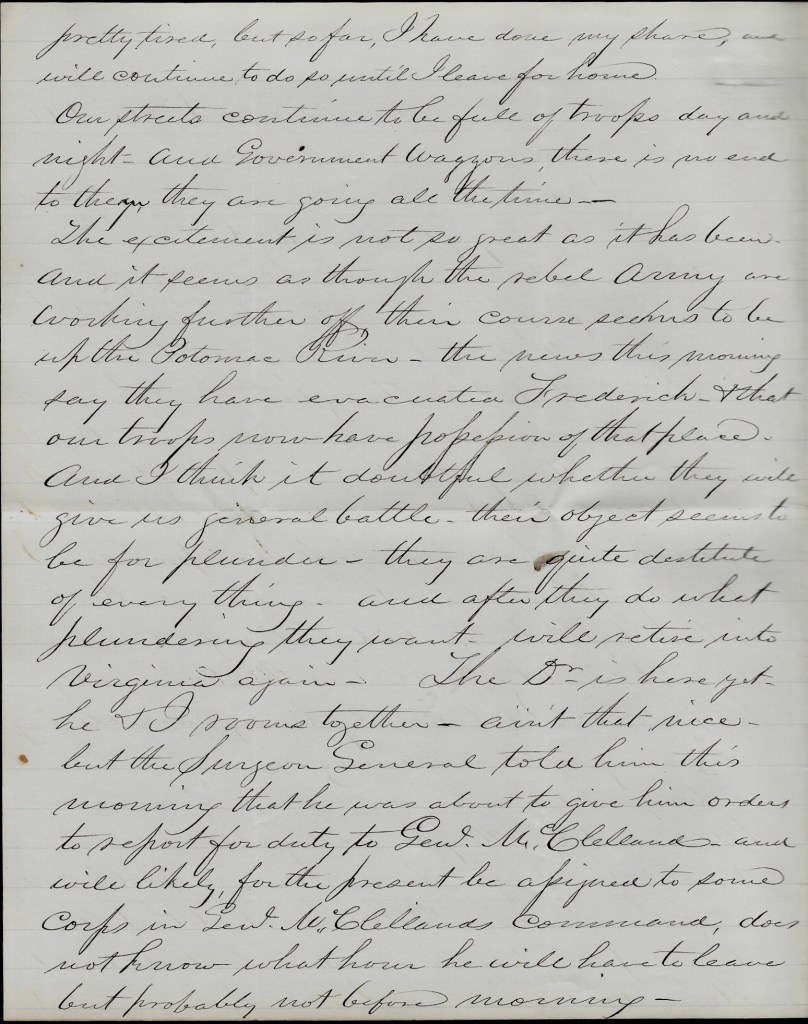 pretty tired, but so far, I have done my share, and
will continue to do so until I leave for home.
Our streets continue to be full of troops day and
night - and Government Waggons, there is no end
to them, they are going all the time —
The excitement is not so great as it has been -
And it seems as though the rebel Army are
working further off, their course seems to be
up the Potomac River - the news this morning
say they have evacuated Frederick - & that
our troops now have possession of that place -
And I think it doubtful whether they will
give us general battle - their object seems to
be for plunder - they are quite destitute
of every thing - and after they do what
plundering they want - will retire into
Virginia again - The Dr is here yet -
he & I rooms together - ain't that nice -
but the Surgeon General told him this
morning that he was about to give him orders
to report for duty to Genl. McClelland - and
will likely, for the present be assigned to some
Corps in Genl. McClellands command, does
not know what hour he will have to leave
but probably not before morning -